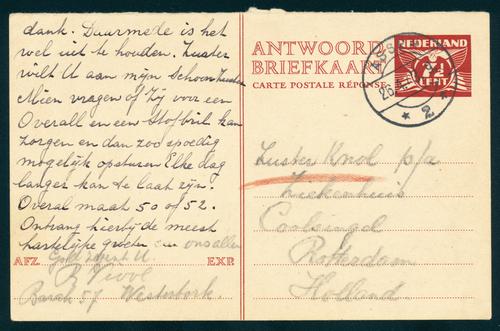 dank. Daarmede is het
wel uit te houden. Zuster
wilt U aan mijn Schoonzuster
Mien vragen of Zij voor een
Overall en een Stofbril kan
zorgen en dan zoo spoedig
mogelijk opsturen Elke dag
langer kan te laat zijn.
Overal maat 50 of 52.
Ontvang hierbij de meest
hartelijke groeten van ons allen
U
AFZ.
EXP.
Barak 57 Westerbork.
ANTWOORD
BRIEFKAART
CARTE POSTALE RÉPONSE
NEDERLAND
7½
CENT
ASS
26
2
Zuster Knol p/a
Ziekenhuis
Coolsingel
Rotterdam
Holland.